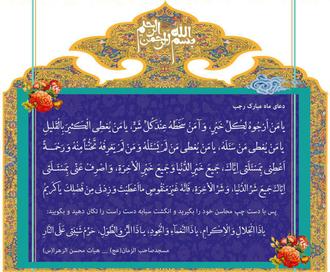 بسم الله الرحمن الرحیم
دعای ماه مبارک رجب
یا مَنْ اَرْجُوهُ لِكُلِّ خَيْرٍ، وَ آمَنُ سَخَطَهُ عِنْدَ كُلِّ شَرٍّ، يا مَنْ يُعْطِى الْكَثيرَ بِالْقَليلِ
يا مَنْ يُعْطى مَنْ سَئَلَهُ، يا مَنْ يُعْطى مَنْ لَمْ يَسْئَلْهُ وَ مَنْ لَمْ يَعْرِفْهُ تَحَنُّناً مِنْهُ وَ رَحْمَةً
اَعْطِنى بِمَسْئَلَتى اِيّاكَ، جَميعَ خَيْرِ الدُّنْيا وَ جَميعَ خَيْرِ الْاخِرَةِ، وَ اصْرِفْ عَنّى بِمَسْئَلَتى
اِيّاكَ جَميعَ شَرِّ الدُّنْيا، وَ شَرِّ الْاخِرَةِ، فَاِنَّهُ غَيْرُ مَنْقُوصٍ ما اَعْطَيْتَ وَ زِدْنى مِنْ فَضْلِكَ يا كَريمُ
پس با دست چپ محاسن خود را بگیرید و انگشت سبابه دست راست را تکان دهید و بگویید:
يا ذَا الْجَلالِ وَ الْاِكْرامِ، يا ذَا النَّعْماءِ وَ الْجُودِ، يا ذَا الْمَنِّ وَ الطَّوْلِ، حَرِّمْ شَيْبَتى عَلَى النّارِ
مسجدصاحب الزمان(عج) ... هیات محسن الزهرا(س)